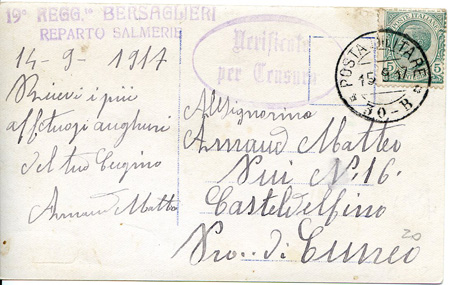 19° REGG.to BERSAGLIERI
REPARTO SALMERIE
14-9-1917
Ricevi i più
affettuosi auguri
del tuo Cugino
Arnaud Matteo
Verificato
per Censura
POSTE ITALIANE
5
POSTA MILITARE
15.9.17
30-B
All Signorino
Arnaud Matteo
N. 16
Casteldelfino
Prov. di Cuneo
20